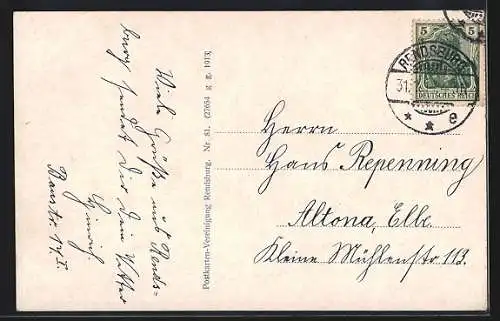 Viele Grüße aus Rends-
burg sendet Dir Dein Vetter
Banstr. 14 I.
Postkarten-Vereinigung Rendsburg. Nr. 81. (27654 g g. 1913)
5 5
DEUTSCHES REICH
RENDSBURG
31.
* * e
Herrn
Hans Repenning
Altona, Elbe
Kleine Mühlenstr 113.